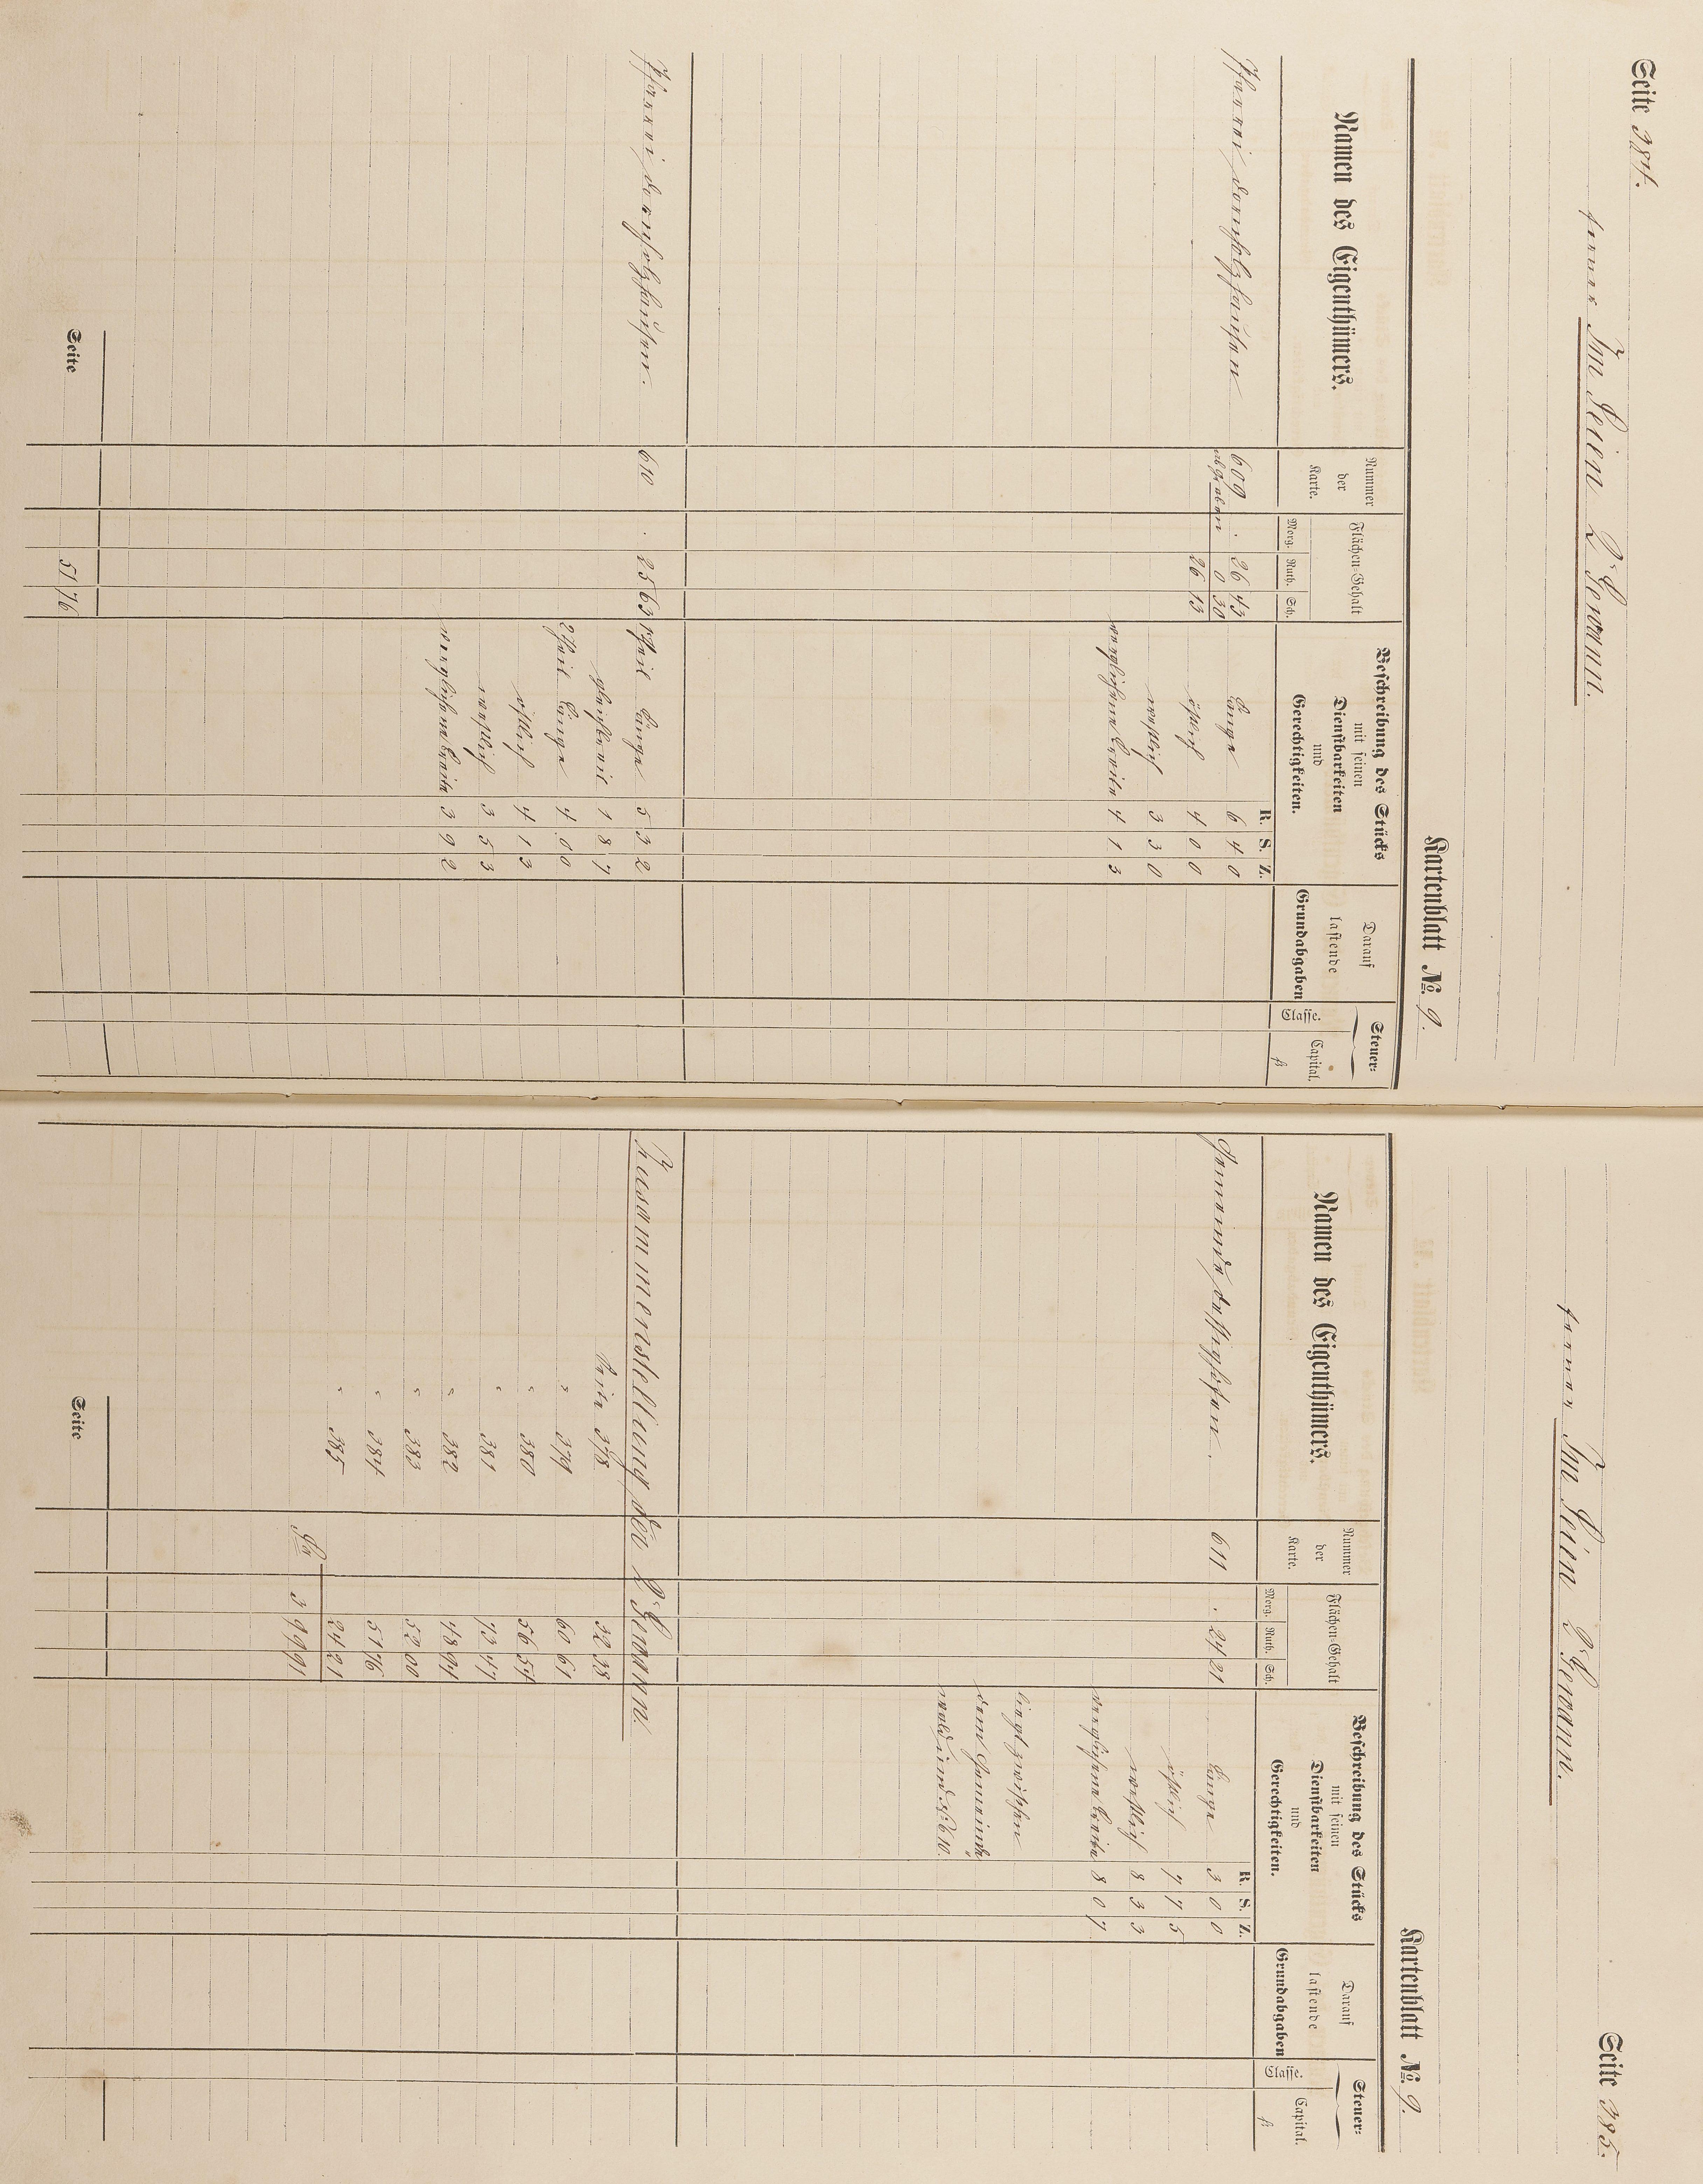 Seite 384.
ferner Im Leien 2r Gewann.
Kartenblatt No. 9.
Namen des Eigenthümers.
Nummer der Karte.
Flächen-Gehalt
Morg. Ruth. Sch.
Beschreibung des Stücks
mit seinen
Dienstbarkeiten
und
Gerechtigkeiten.
R. S. Z.
Darauf
lastende
Grundabgaben
Steuer-
Classe. Capital.
fl
Pfarrei Dornholzhausen 609 . 26 43 Länge 6 4 0
abgraben 0 30
26 13 östlich 4 0 0
westlich 3 3 0
verglichene Breite 4 1 3
Pfarrei Dornholzhausen. 610 . 25 63 1Theil Länge 5 3 2
gleichbreit 1 8 7
2Theil Länge 4 0 0
östlich 4 1 3
westlich 3 5 3
verglichene Breite 3 9 2
Seite 51 76
Seite 385.
ferner Im Leien 2r Gewann.
Kartenblatt No. 9.
Namen des Eigenthümers.
Nummer der Karte.
Flächen-Gehalt
Morg. Ruth. Sch.
Beschreibung des Stücks
mit seinen
Dienstbarkeiten
und
Gerechtigkeiten.
R. S. Z.
Darauf
lastende
Grundabgaben
Steuer-
Classe. Capital.
fl
Gemeinde Dessighofen. 611 . 24 21 Länge 3 0 0
östlich 7 7 5
westlich 8 3 3
verglichene Breite 8 0 7
liegt zwischen
dem Gemeinde
wald und No 610.
Zusammenstellung der 2r Gewann.
Seite 378 32 38
" 379 60 61
" 380 56 54
" 381 73 47
" 382 48 94
" 383 52 00
" 384 51 76
" 385 24 21
3 99 91
Seite